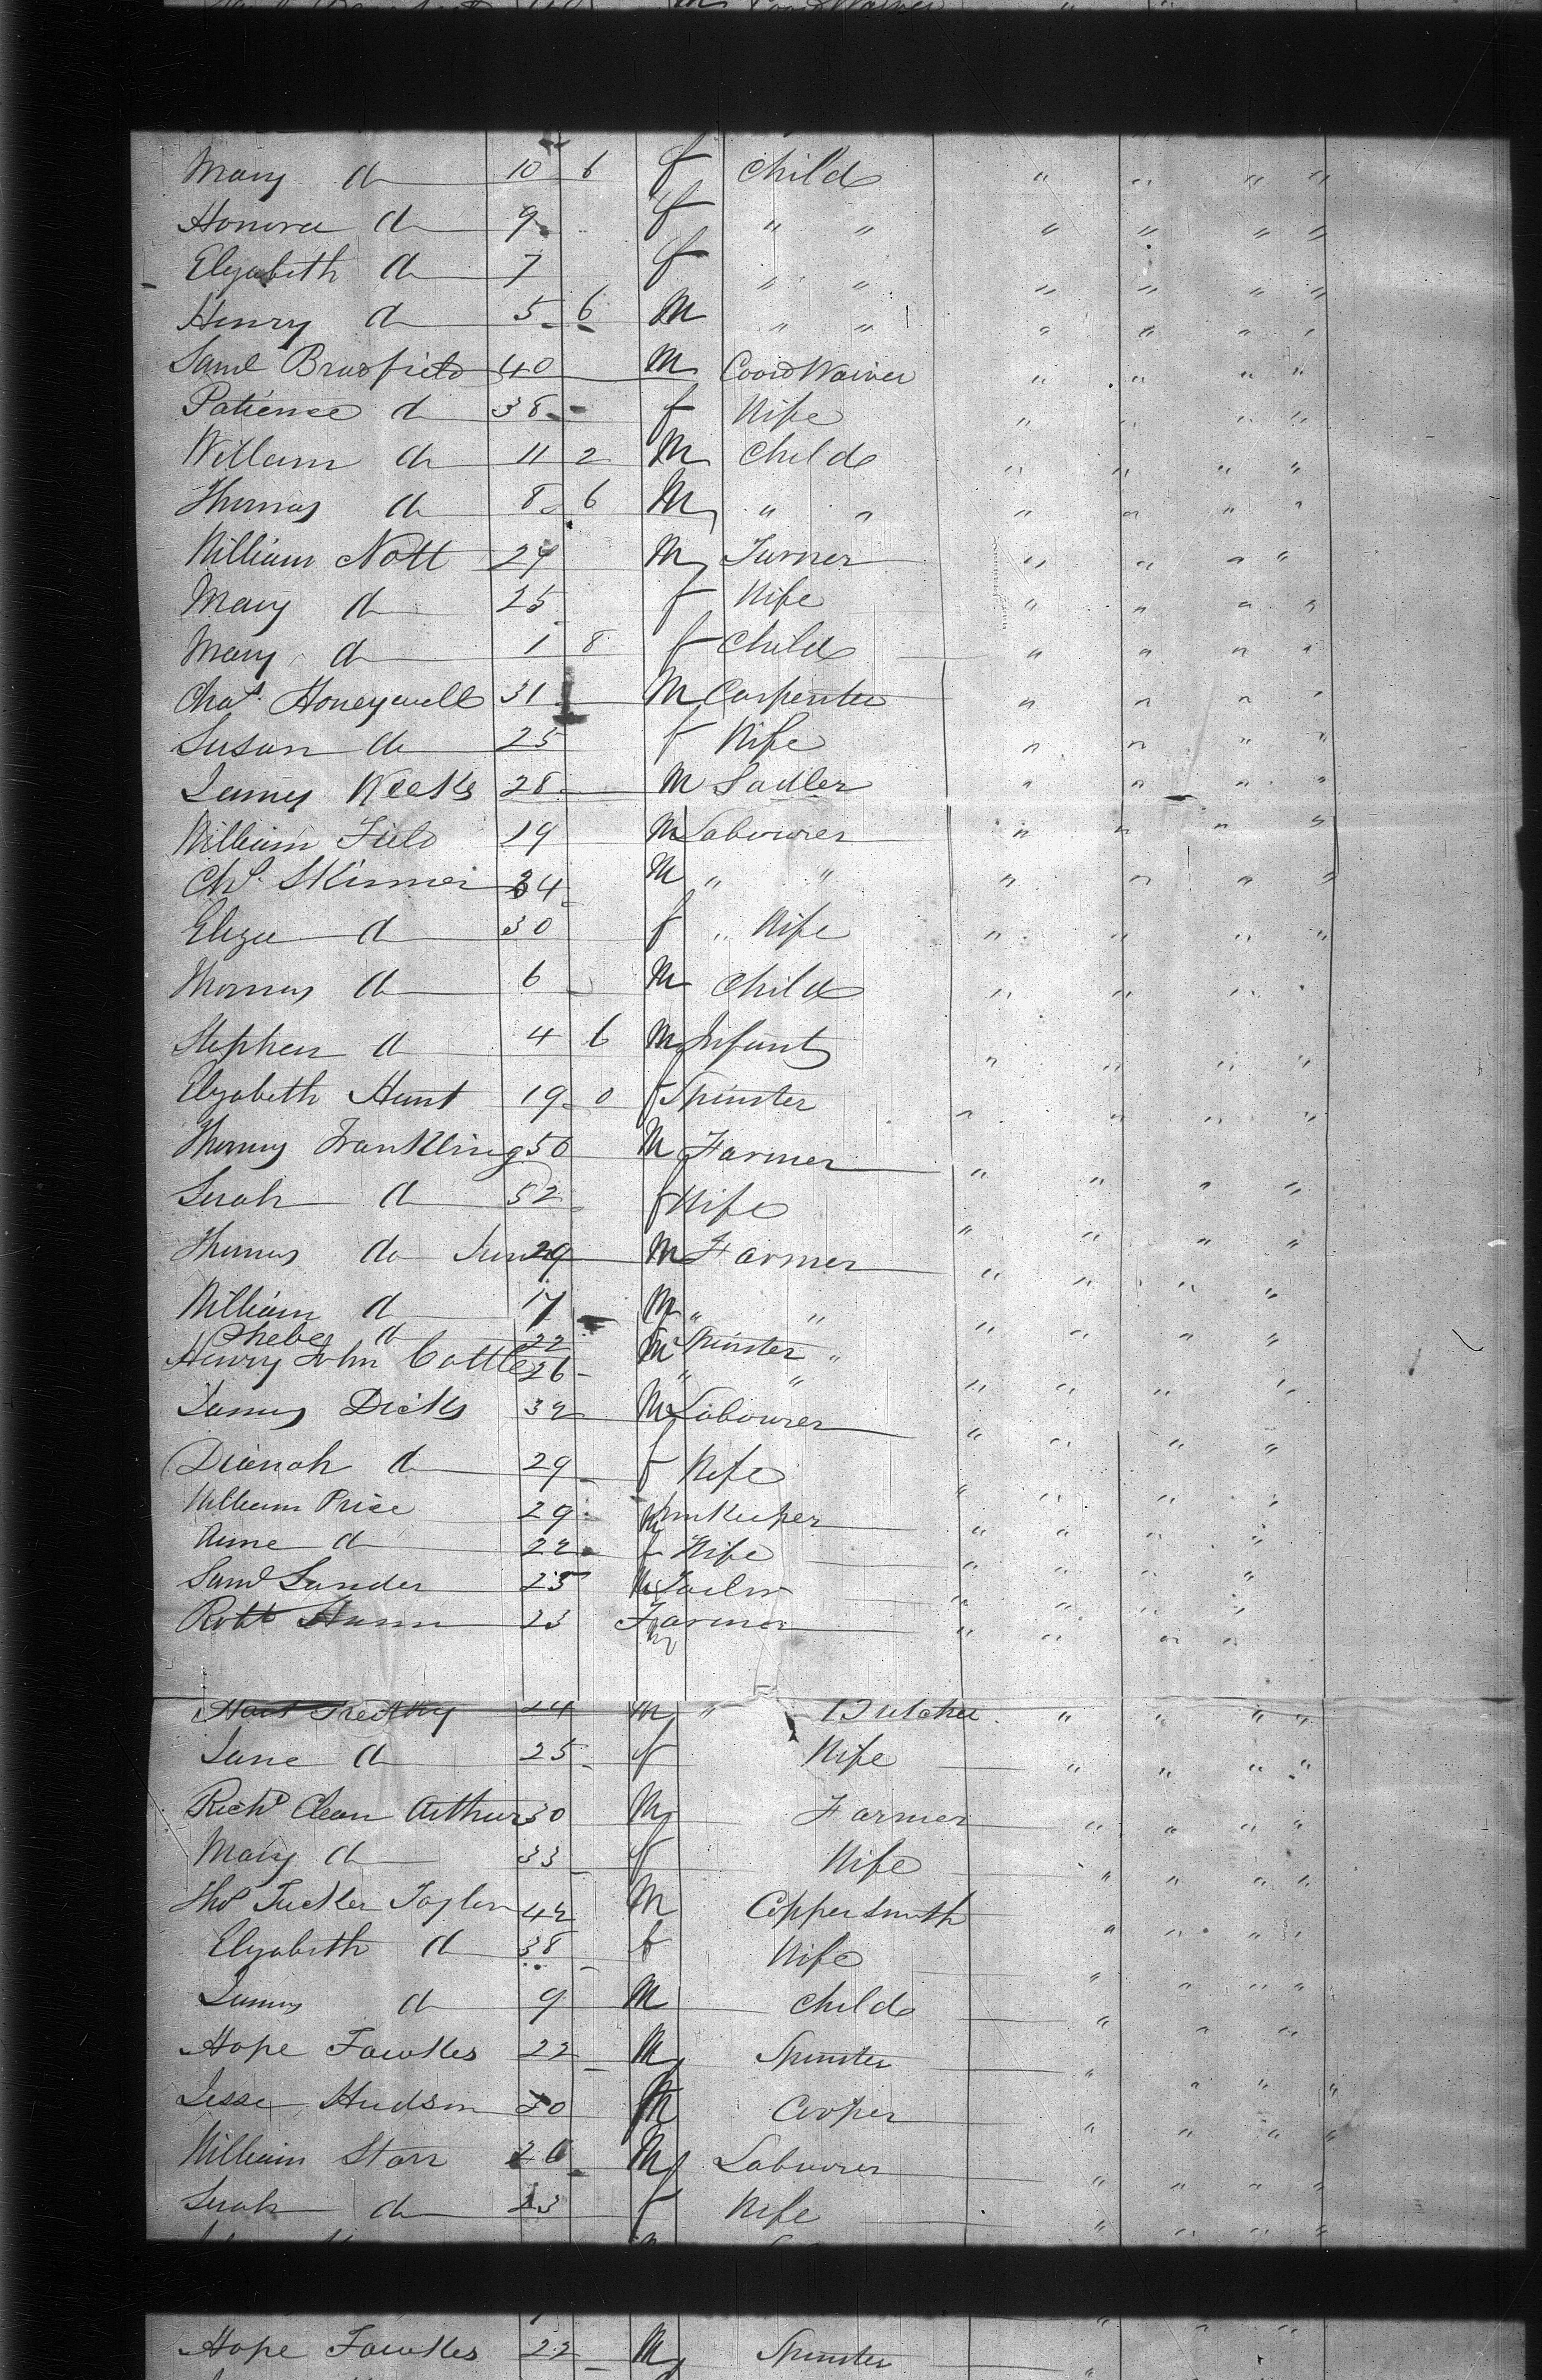 Mary d 10 6 f Child " " " "
Honora d 9 f " " " " " "
Elizabeth d 7 f " " " " " "
Henry d 5 6 M " " " " " "
Saml Bradfield 40 M CoordWainer " " " "
Patience d 38 f Wife " " " "
William d 11 2 M Child " " " "
Thomas d 8 6 M " " " " " "
William Nott 24 M Turner " " " "
Mary d 25 f Wife " " " "
Mary d 1 8 f Child " " " "
Chas. Honeywell 31 M Carpenter " " " "
Susan do 25 f Wife " " " "
James Weeks 28 M Sadler " " " "
William Field 19 M Labourer " " " "
Chs. Skinner 34 M " " " " " "
Eliza d 30 f " Wife " " " "
Thomas d 6 M Child " " " "
Stephen d 4 6 M Infant " " " "
Elizabeth Hunt 19 0 f Spinster " " " "
Thomas Frankling 50 M Farmer " " " "
Sarah d 52 f Wife " " " "
Thomas do Junr 29 M Farmer " " " "
William d 17 M " " " " " "
Phebe d 22 f Spinster "
Henry John Cottle 26 M " " " " " "
James Dicks 32 M Labourer " " " "
Dianah d 29 f Wife " " " "
William Price 29 M Innkeeper " " " "
Anne d 22 f Wife " " " "
Saml Sander 25 M Tailor " " " "
Robt Hunn 23 M Farmer " " " "
24 M " Butcher " " " "
Jane d 25 f Wife " " " "
Richd Clean Arthur 30 M Farmer " " " "
Mary d 33 f Wife " " " "
Thos Tucker Taylor 42 M Coppersmith " " " "
Elizabeth d 38 f Wife " " " "
James d 9 M Child " " "
Hope Fawkes 22 M Spinster " " " "
Jesse Hudson 30 M Cooper " " " "
William Starr 26 M Labourer " " " "
Sarah d 23 f Wife " " " "
Hope Fawkes 22 M Spinster